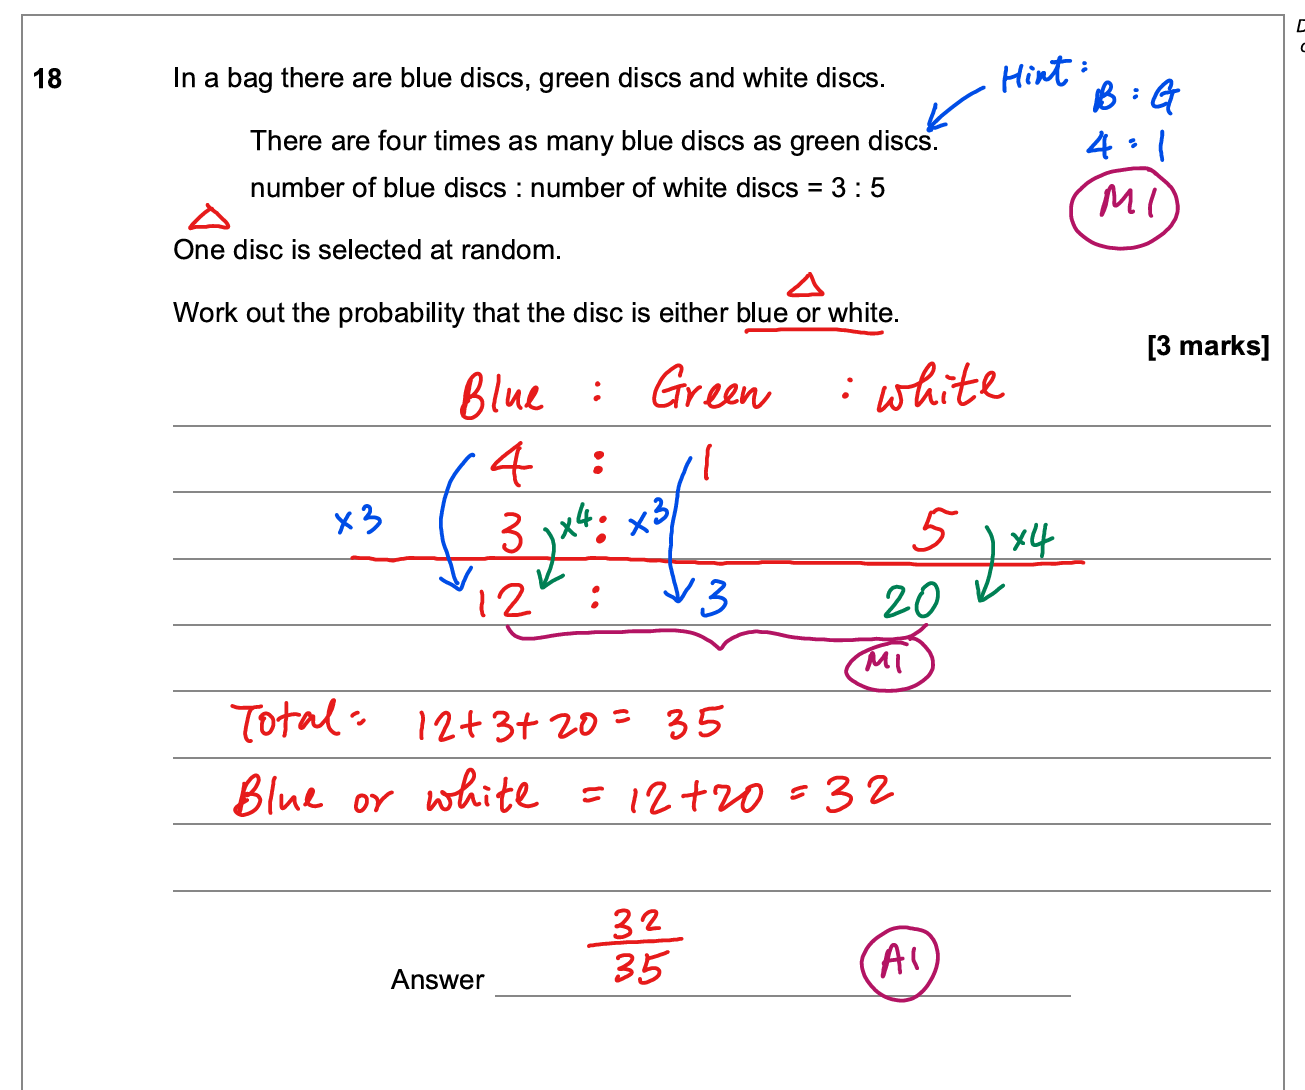 18 In a bag there are blue discs, green discs and white discs.
Hint:
B : G
There are four times as many blue discs as green discs.
4 : 1
number of blue discs : number of white discs = 3 : 5
M1
One disc is selected at random.
Work out the probability that the disc is either blue or white.
[3 marks]
Blue : Green : white
4 : 1
×3 3 ×4 : ×3 5 ×4
12 : 3 20
M1
Total = 12+3+20 = 35
Blue or white = 12+20 = 32
32
35
Answer A1